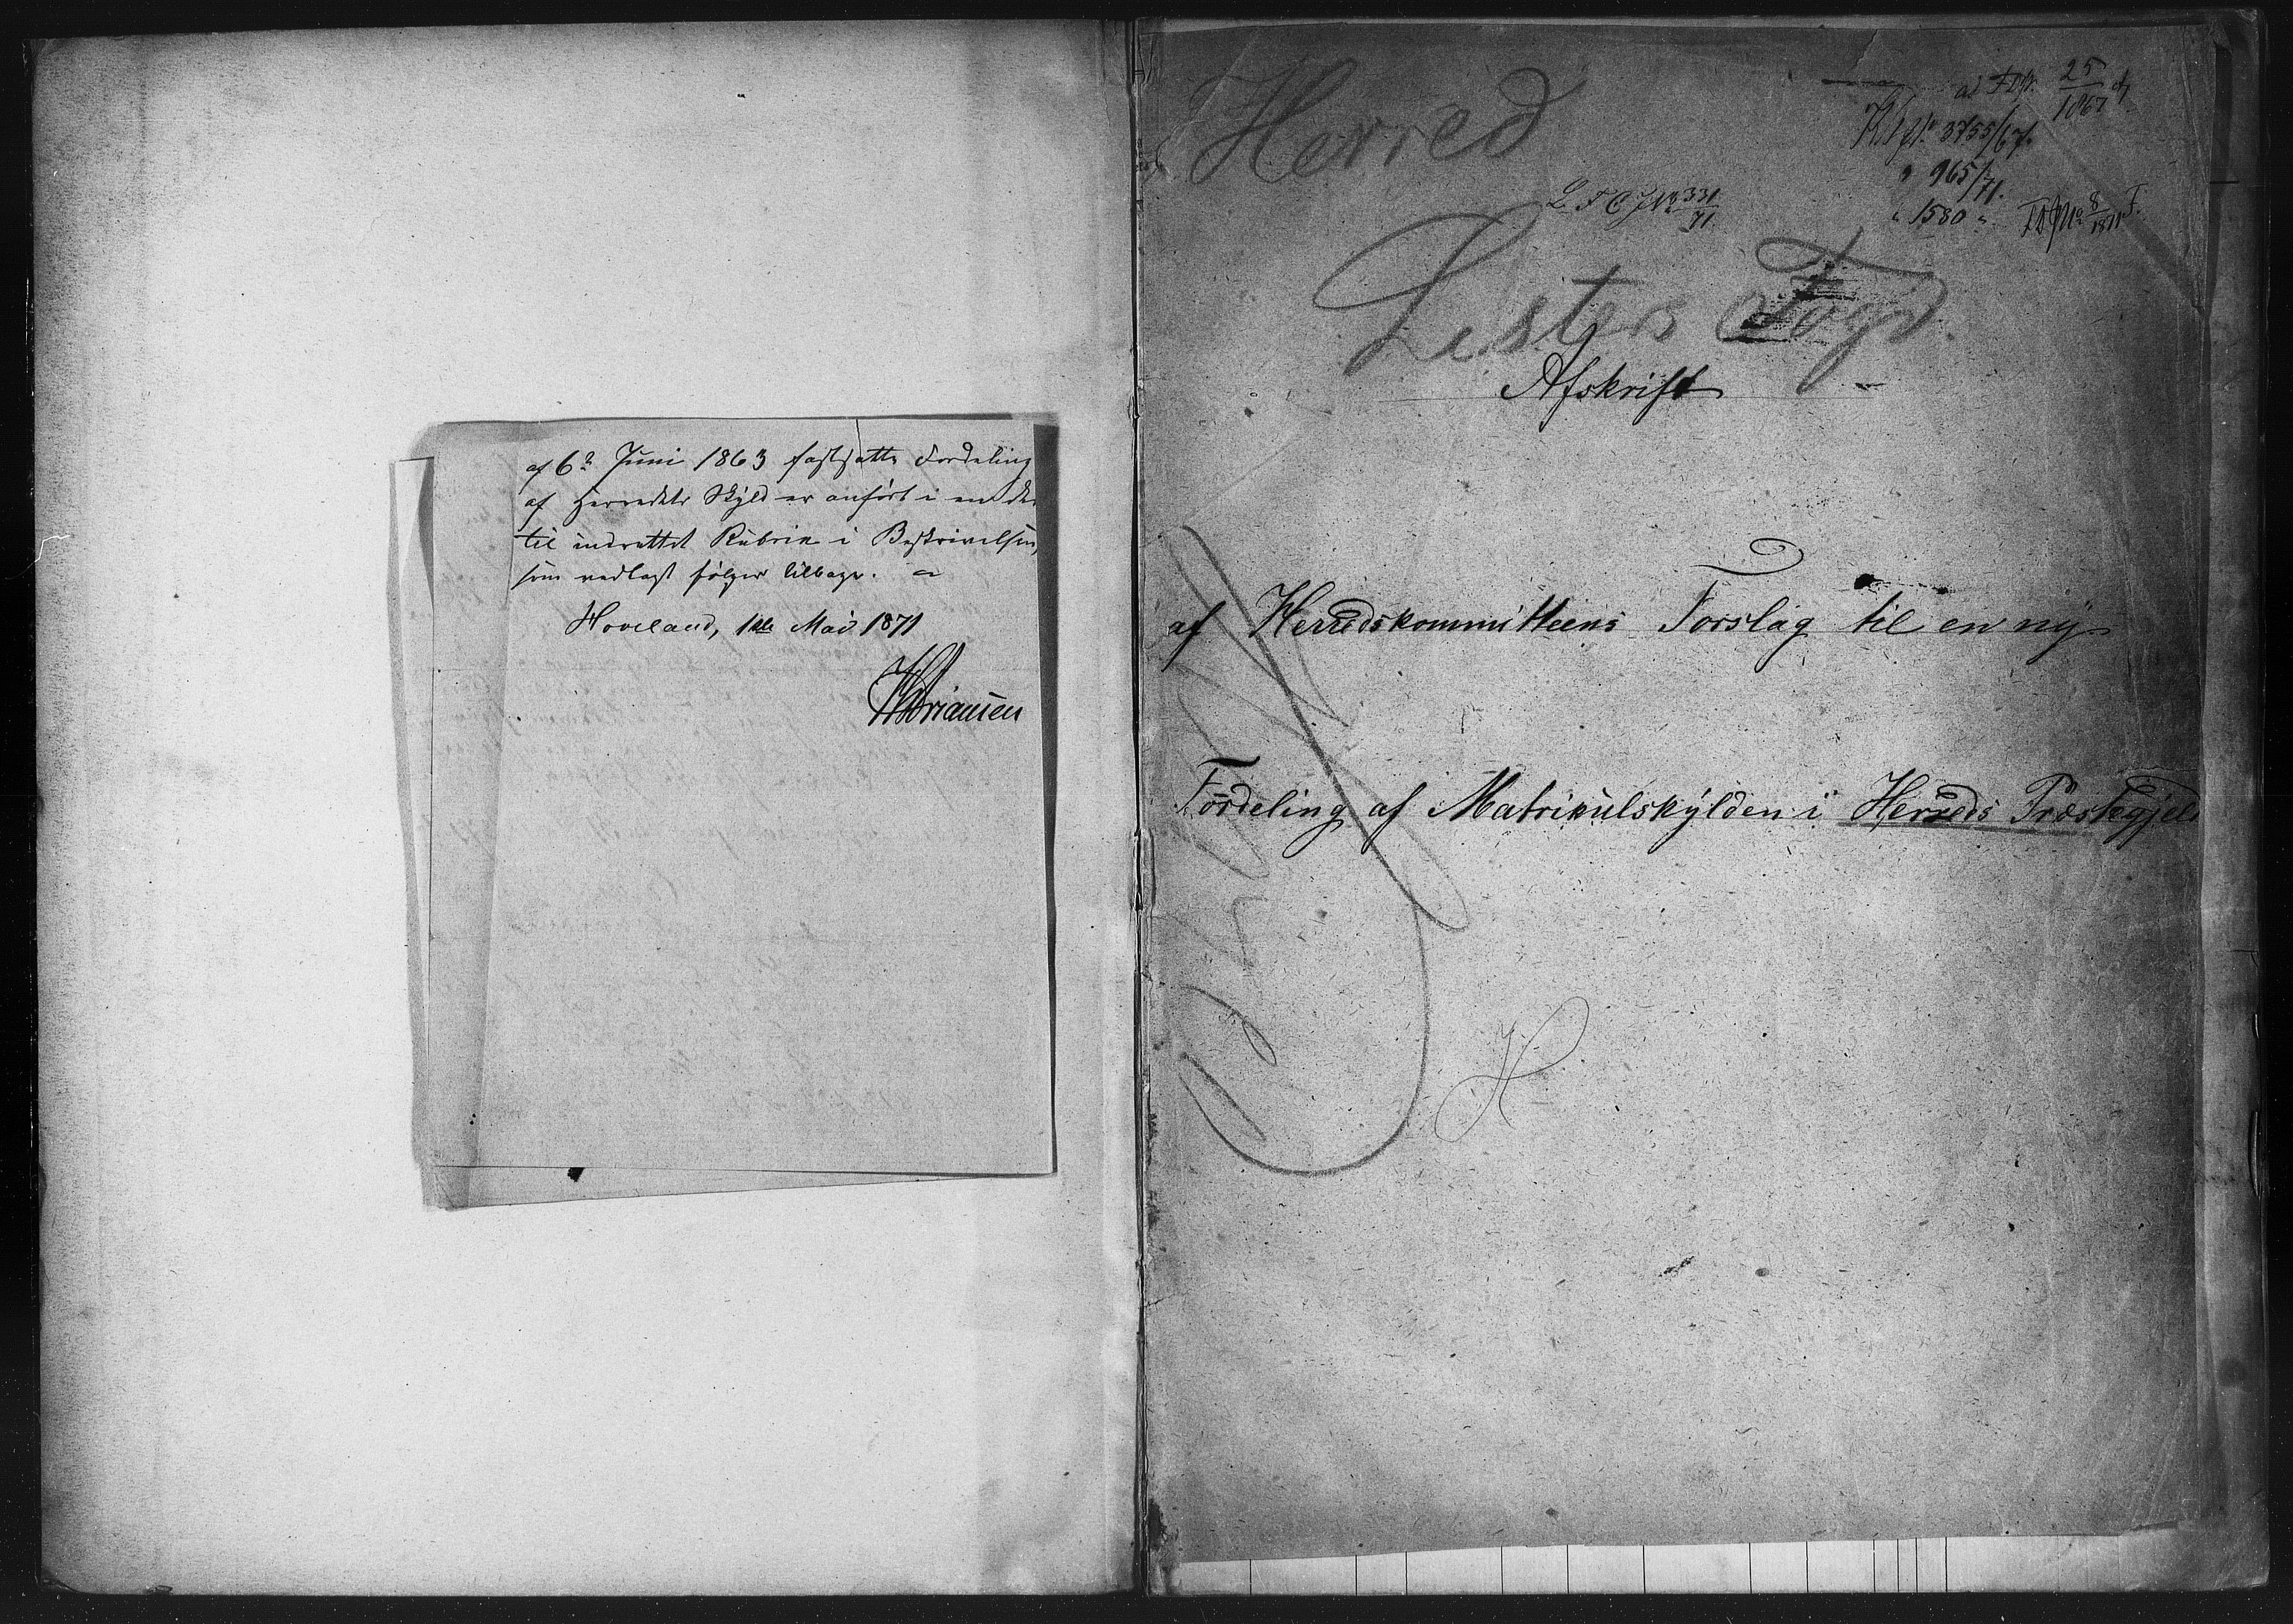 af 6te Juni 1863 fastsatte Fordeling
af Herredets Skyld er anført i en der
til indrettet Rubrik i Beskrivelsen,
som vedlagt følger tilbage.
Hoveland, 1ste Mai 1871
Adriansen
Herred
ad FDJr. 25/1867
KJNo 3755/67.
" 965/71.
" 1580 " FDJNo 8/1871 F.
L F C JNo 331/71.
Listers Fogd.
Afskrift
af Herredskommitteens Forslag til en ny
Fordeling af Matrikulskylden i Herreds Præstegjeld
H